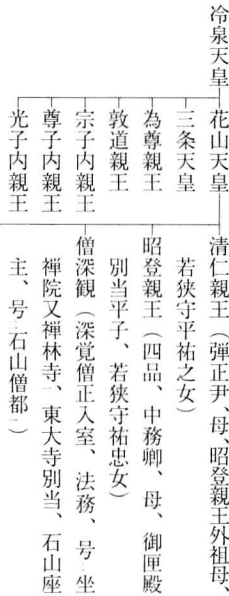 冷泉天皇
花山天皇
三条天皇
為尊親王
敦道親王
宗子内親王
尊子内親王
光子内親王
清仁親王（弾正尹、母、昭登親王外祖母、
若狭守平祐之女）
昭登親王（四品、中務卿、母、御匣殿
別当平子、若狭守祐忠女）
僧深観（深覚僧正入室、法務、号二坐
禅院又禅林寺一、東大寺別当、石山座
主、号二石山僧都一）